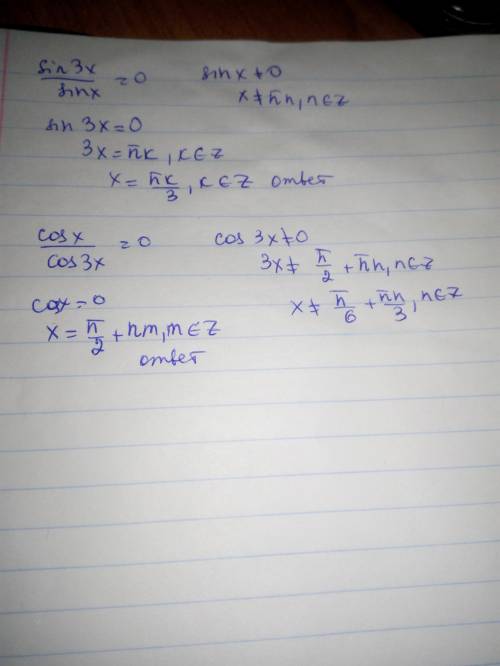 sin 3x / sin x = 0    sin x ≠ 0
x ≠ πn, n ∈ Z
sin 3x = 0
3x = πk, k ∈ Z
x = πk/3, k ∈ Z ответ
cos x / cos 3x = 0    cos 3x ≠ 0
3x ≠ π/2 + πn, n ∈ Z
cos x = 0    x ≠ π/6 + πn/3, n ∈ Z
x = π/2 + πm, m ∈ Z
ответ